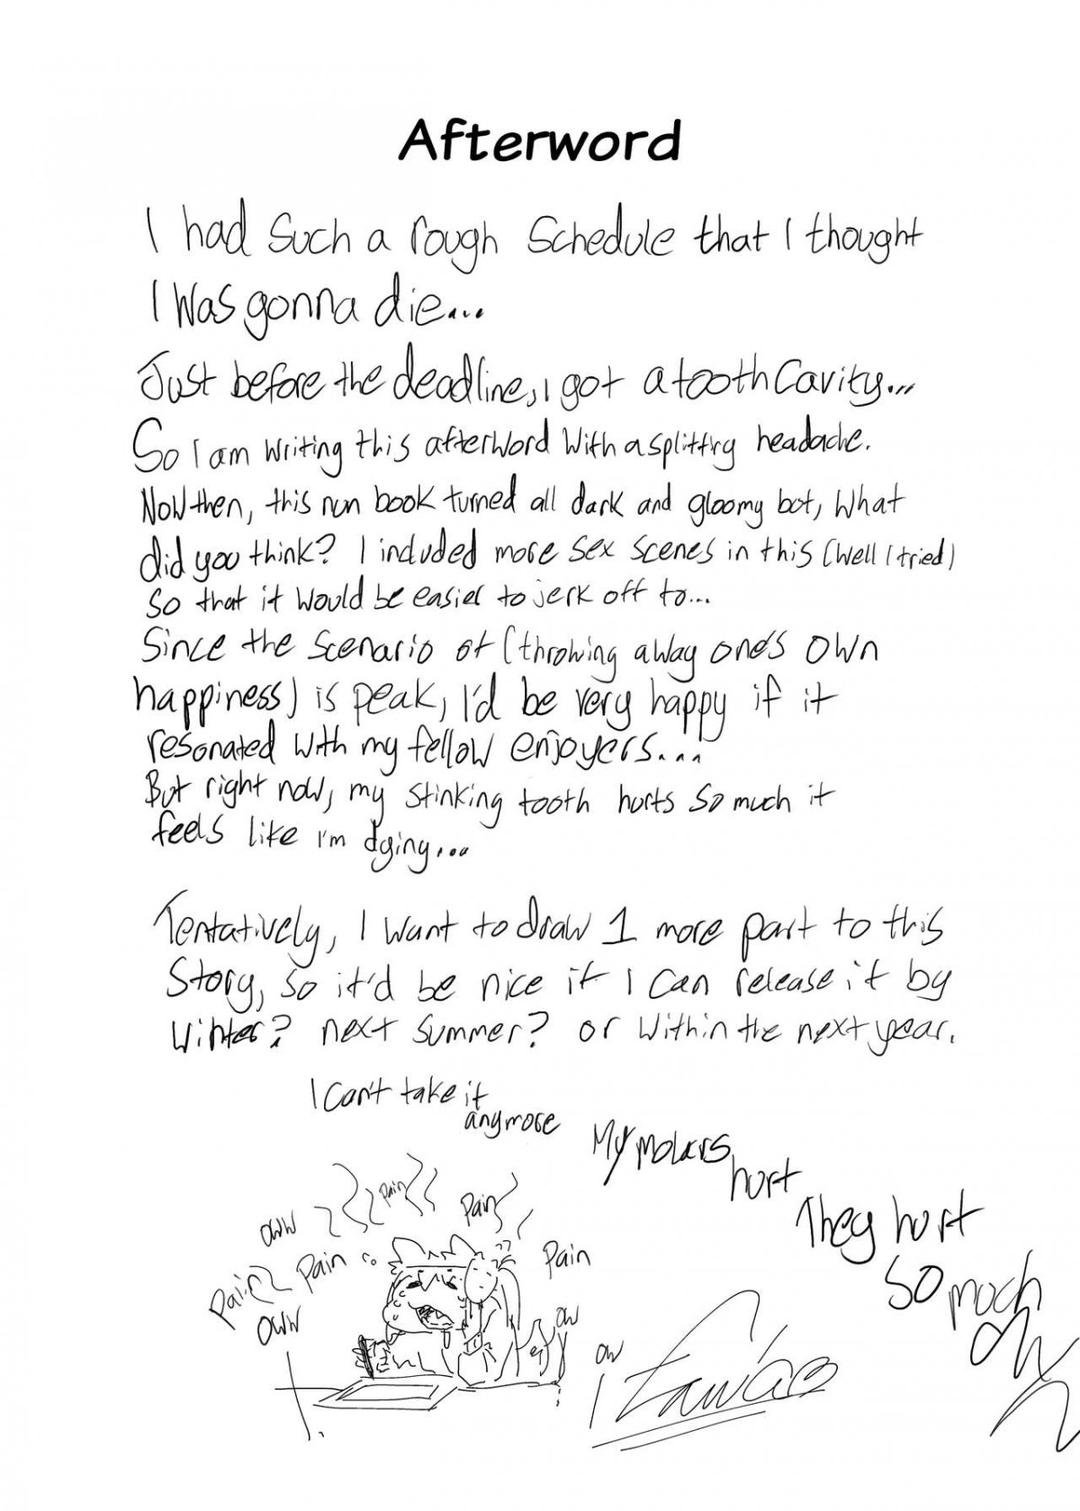 Afterword
I had such a rough schedule that I thought
I was gonna die...
Just before the deadline, I got a tooth cavity...
So I am writing this afterword with a splitting headache.
Now then, this nun book turned all dark and gloomy but, what
did you think? I included more sex scenes in this (well I tried)
so that it would be easier to jerk off to...
Since the scenario of (throwing away one's own
happiness) is peak, I'd be very happy if it
resonated with my fellow enjoyers...
But right now, my stinking tooth hurts so much it
feels like I'm dying...
Tentatively, I want to draw 1 more part to this
story, so it'd be nice if I can release it by
winter? next summer? or within the next year.
I can't take it
anymore
My molars
hurt
They hurt
so much
Ow
Pain
Pain
Oww
Pain
Pain
Pain
Oww
Ow
Ow